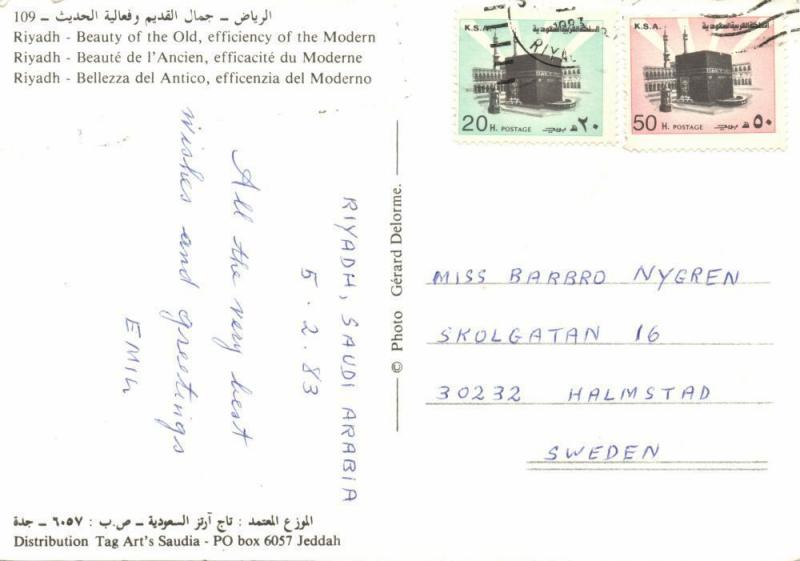 الرياض ــ جمال القديم وفعالية الحديث ــ 109
Riyadh - Beauty of the Old, efficiency of the Modern
Riyadh - Beauté de l'Ancien, efficacité du Moderne
Riyadh - Bellezza del Antico, efficenzia del Moderno
RIYADH, SAUDI ARABIA
5.2.83
All the very best
wishes and greetings
EMIL
© Photo Gérard Delorme.
K.S.A. المملكة العربية السعودية
20 H. POSTAGE بريد ٢٠ هـ
1983
RIYAD
K.S.A. المملكة العربية السعودية
50 H. POSTAGE بريد ٥٠ هـ
MISS BARBRO NYGREN
SKOLGATAN 16
30232 HALMSTAD
SWEDEN
الموزع المعتمد : تاج آرتز السعودية ــ ص.ب : ٦٠٥٧ ــ جدة
Distribution Tag Art's Saudia - PO box 6057 Jeddah